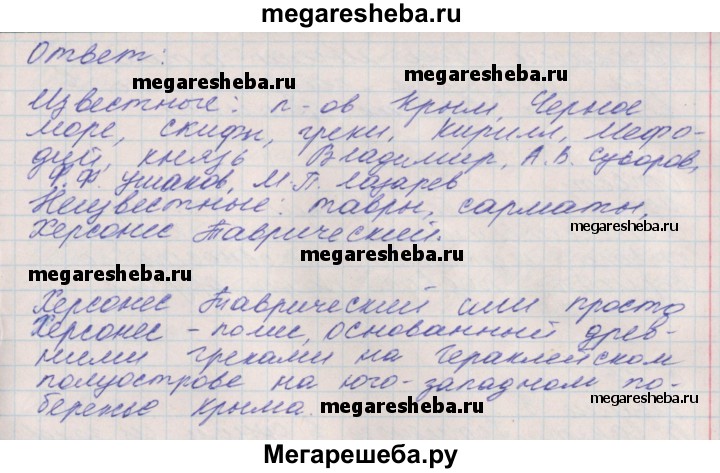 megaresheba.ru
Ответ:
megaresheba.ru
megaresheba.ru
Известные: п-ов Крым, Черное
море, скифы, греки, Кирилл, Мефо-
дий, князь Владимир, А.В. Суворов,
Ф.Ф. Ушаков, М.П. Лазарев
Неизвестные: тавры, сарматы,
Херсонес Таврический.
megaresheba.ru
megaresheba.ru
megaresheba.ru
Херсонес Таврический или просто
Херсонес - полис, основанный древ-
ними греками на Гераклейском
полуострове на юго-западном по-
бережье Крыма.
megaresheba.ru
megaresheba.ru
Мегарешеба.ру